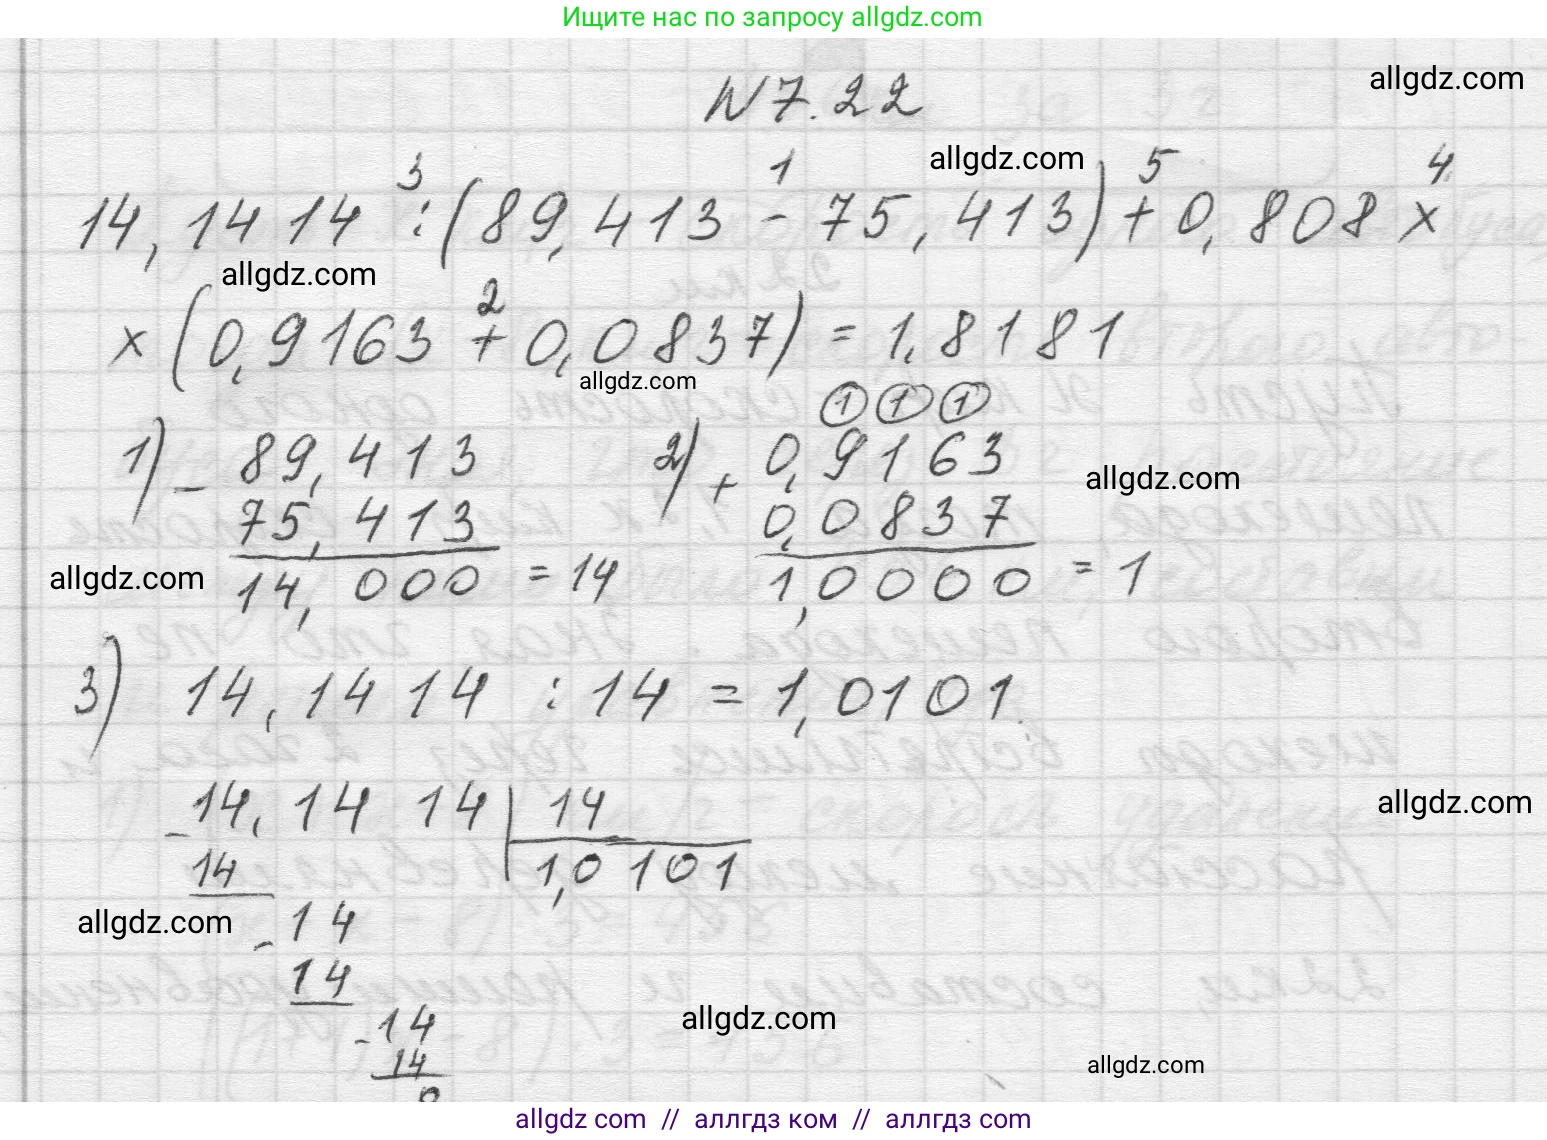 Ищите нас по запросу allgdz.com
allgdz.com
N 7.22
allgdz.com
3 1 5 4
14,1414 : (89,413 - 75,413) + 0,808 ×
allgdz.com
2
× (0,9163 + 0,0837) = 1,8181
allgdz.com
1 1 1
1) - 89,413 2) + 0,9163
allgdz.com
75,413 0,0837
allgdz.com
14,000 = 14 1,0000 = 1
3) 14,1414 : 14 = 1,0101
allgdz.com
- 14,1414 | 14
14 1,0101
allgdz.com
- 14
14
allgdz.com
- 14
allgdz.com
14
0
allgdz com // аллгдз ком // аллгдз com